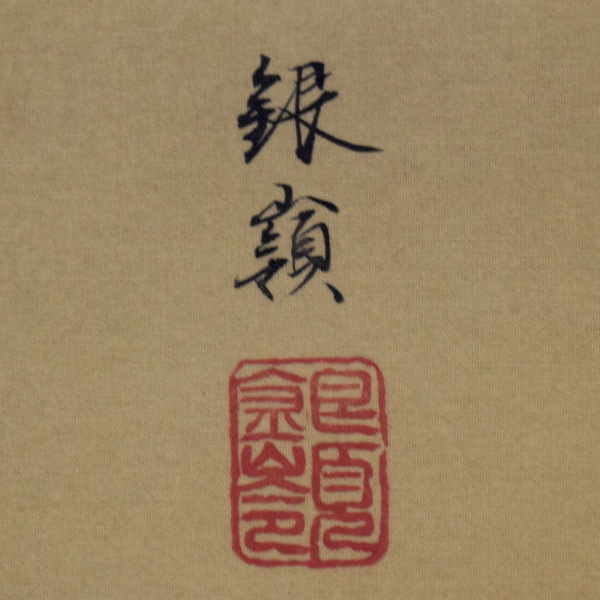 銀
嶺
銀嶺